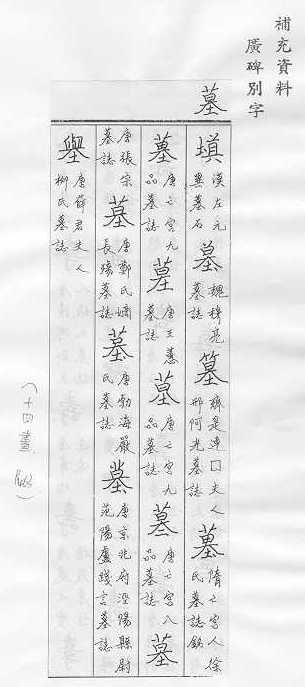 補充資料
廣碑別字
墓
塡 漢左元異墓石 墓 魏穆亮墓誌 墓 齊是連囗夫人邢阿光墓誌 墓 隋亡宮人徐氏墓誌銘
墓 唐亡宮九品墓誌 墓 唐王蕙墓誌 墓 唐亡宮九品墓誌 墓 唐亡宮八品墓誌 墓
唐張宗墓誌 墓 唐鄭氏嫡長殤墓誌 墓 唐勃海嚴氏墓誌 墓 唐京兆府涇陽縣尉范陽盧踐言墓誌
唐薛君夫人柳氏墓誌
(十四畫)